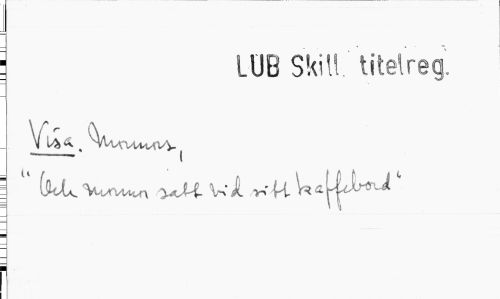 LUB Skill. titelreg.
Visa. Mormors,
"Och mormor satt vid sitt kaffebord"